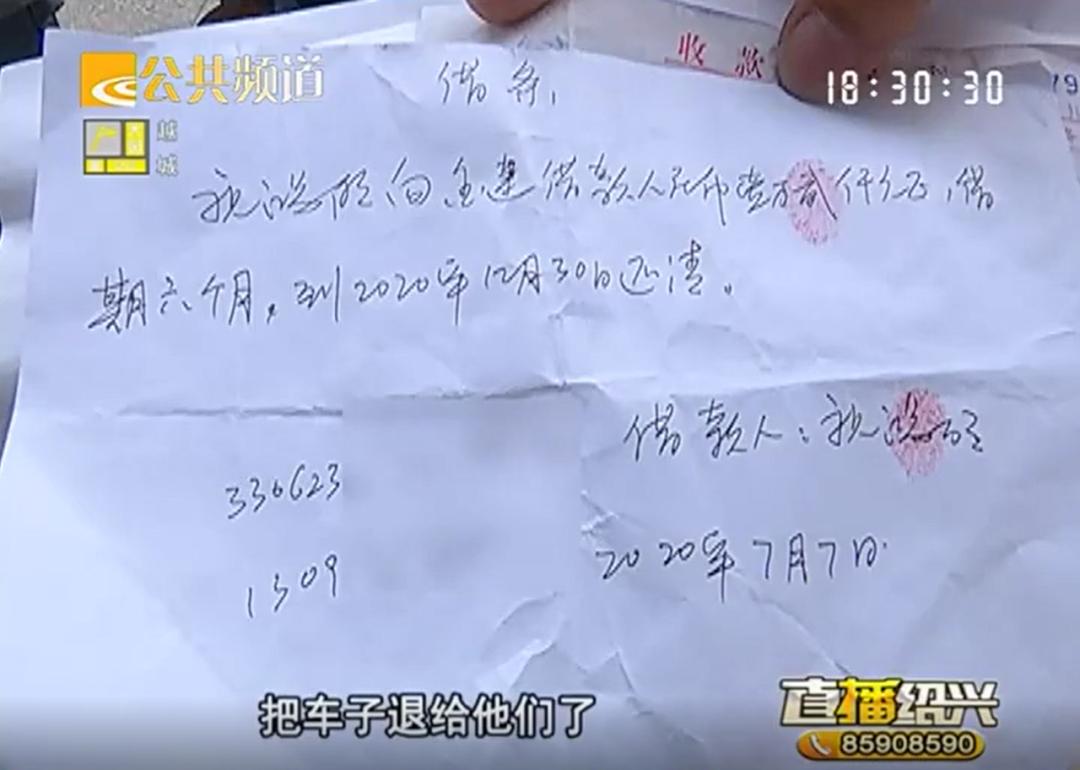 公共频道
18:30:30
越城
收款
79
借条,
祝 向金建借款人民币壹万贰仟元正,借
期六个月,到2020年12月30日还清。
借款人:祝
330623
1309
2020年7月7日
把车子退给他们了
直播绍兴
85908590